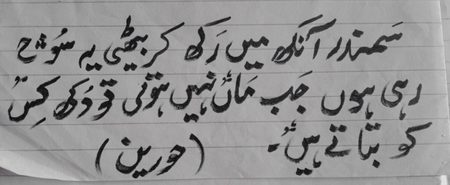 سَمندر آنکھ میں رَکھ کر بیٹھی یہ سُوچ
رہی ہوں جَب مَاں نہیں ہوتی تو دُکھ کِس
کو بتاتے ہیں۔ (حورین)